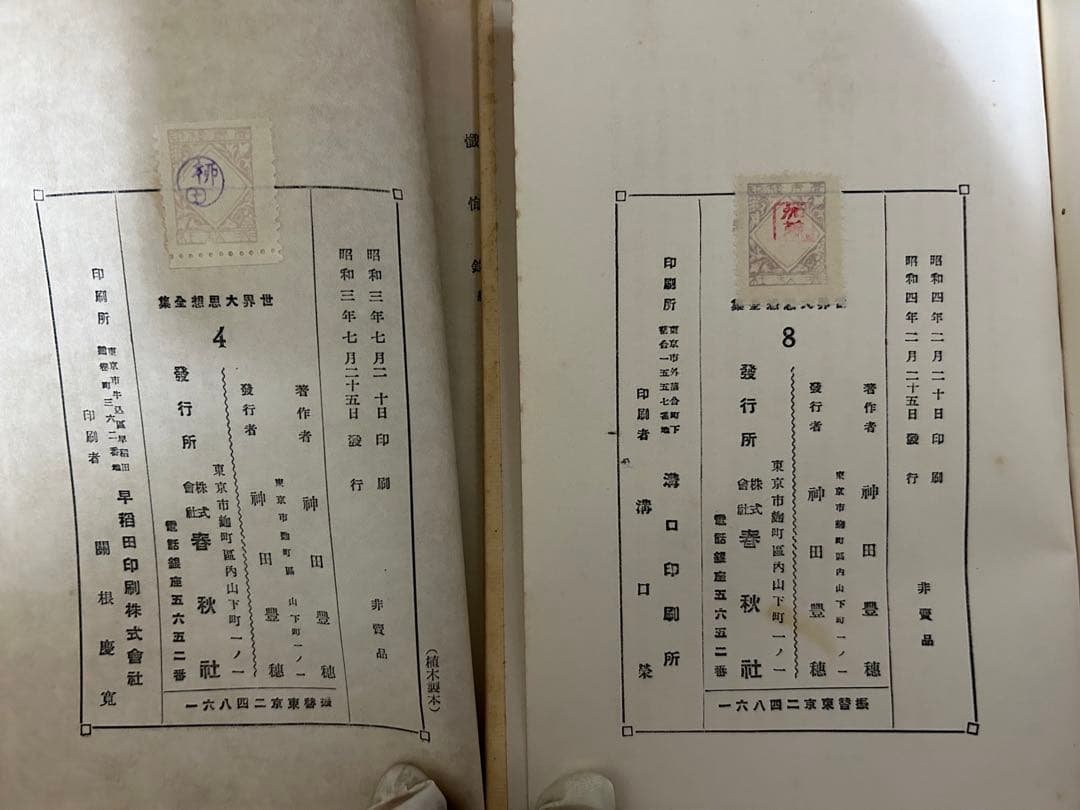 懺悔錄
柳田
昭和三年七月二十日印刷
昭和三年七月二十五日發行
非賣品
世界大思想全集
4
著作者 神田豐穗
東京市麴町區內山下町一ノ一
發行者 神田豐穗
東京市麴町區內山下町一ノ一
發行所 株式會社 春秋社
電話銀座五六五二番
振替東京二四八六一
印刷所 早稻田印刷株式會社
東京市牛込區早稻田
鶴卷町三六二番地
印刷者 關根慶寬
(植木製本)
昭和四年二月二十日印刷
昭和四年二月二十五日發行
非賣品
世界大思想全集
8
著作者 神田豐穗
東京市麴町區內山下町一ノ一
發行者 神田豐穗
東京市麴町區內山下町一ノ一
發行所 株式會社 春秋社
電話銀座五六五二番
振替東京二四八六一
印刷所 溝口印刷所
東京市外落合町下
落合一五五七番地
印刷者 溝口榮